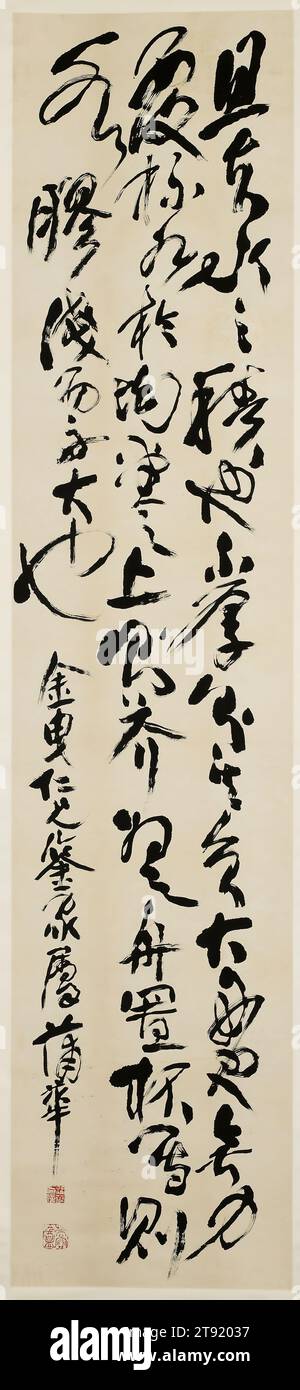 且夫水之積也不厚則其負大舟也無力
覆杯水於坳堂之上則芥為之舟置杯焉則
水膠淺而舟大也
金叟仁兄鑒家屬蒲華
alamy
Image ID: 2T92037
www.alamy.com